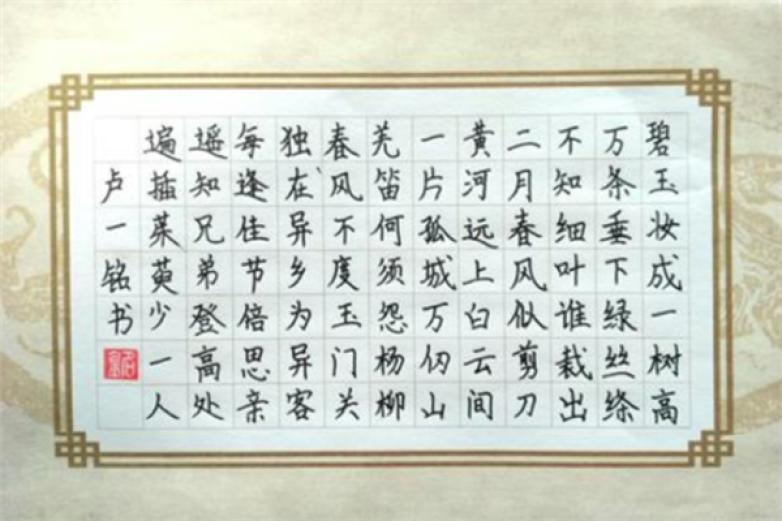 碧玉妆成一树高
万条垂下绿丝绦
不知细叶谁裁出
二月春风似剪刀
黄河远上白云间
一片孤城万仞山
羌笛何须怨杨柳
春风不度玉门关
独在异乡为异客
每逢佳节倍思亲
遥知兄弟登高处
遍插茱萸少一人
卢一铭书